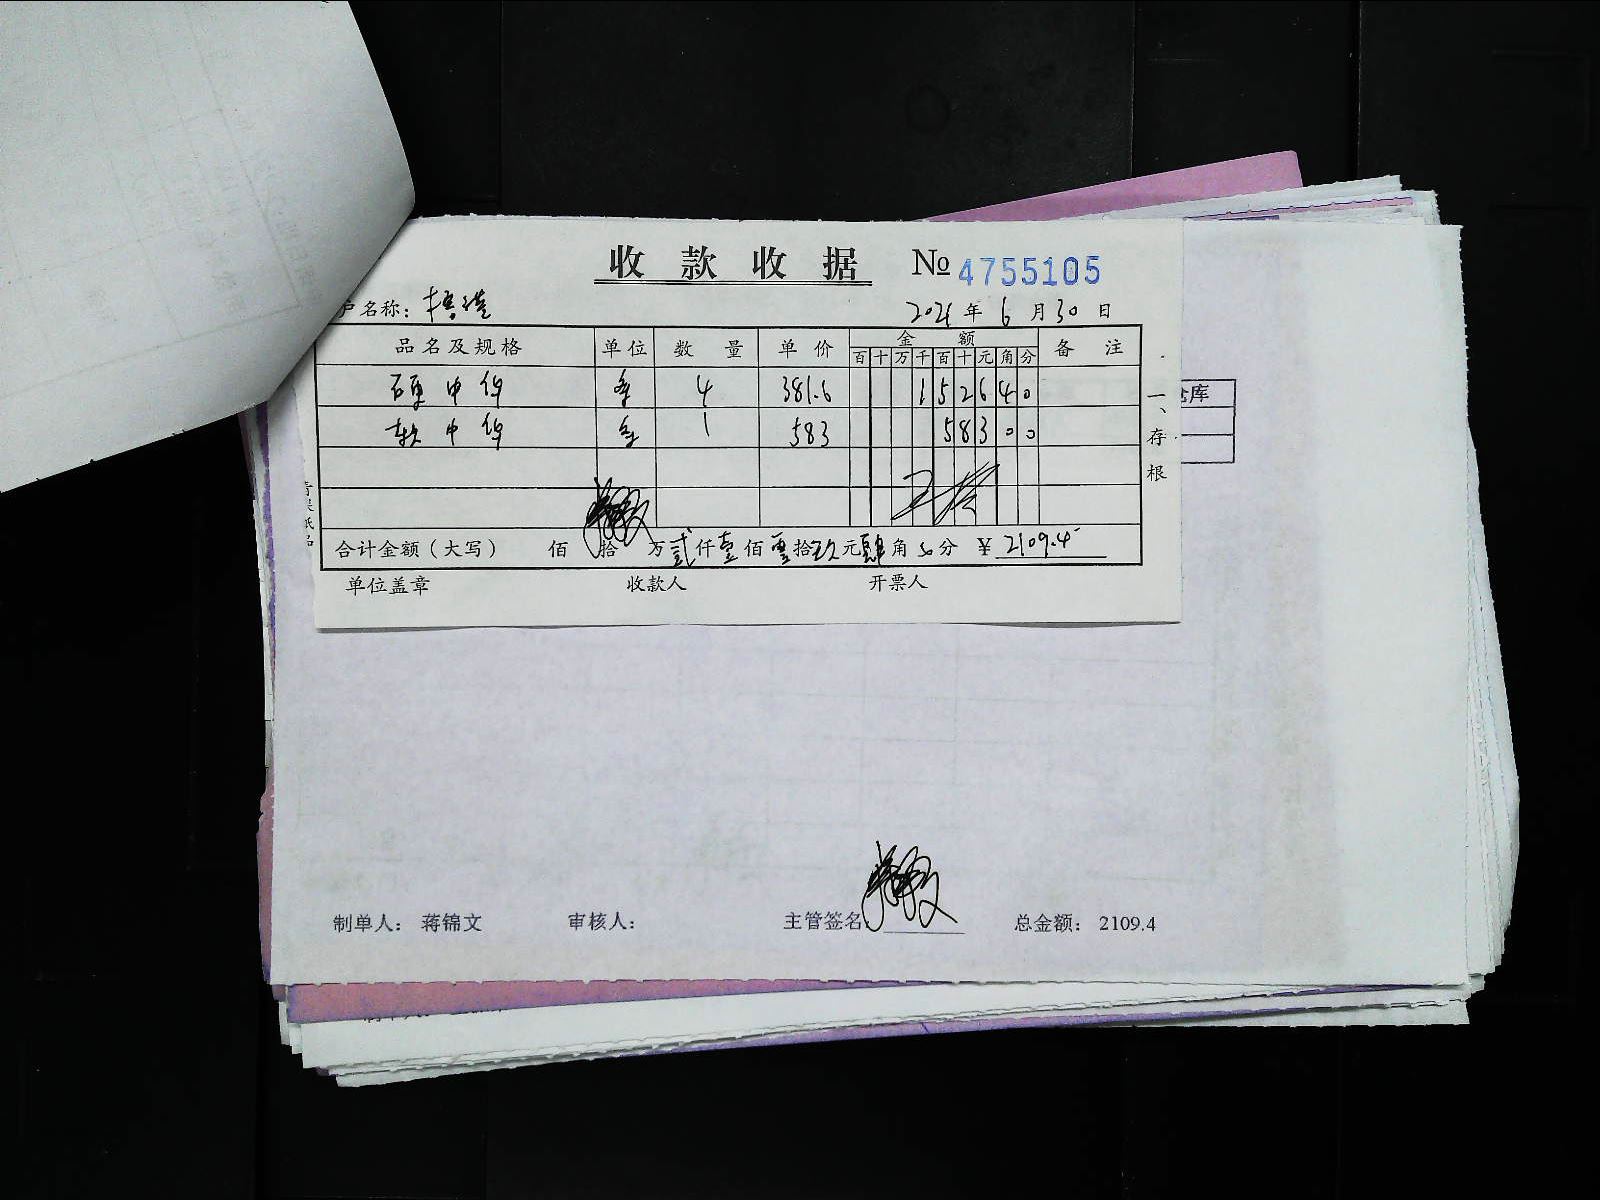 收款收据 № 4755105
户名称: 2021年6月30日
品名及规格 单位 数量 单价 金额 备注
百十万千百十元角分
硬中华 条 4 381.6 1 5 2 6 4 0
软中华 条 1 583 5 8 3 0 0
合计金额(大写) 佰 拾 万贰仟壹佰零拾玖元肆角0分 ¥2109.4
单位盖章 收款人 开票人
一、存根
仓库
制单人: 蒋锦文 审核人: 主管签名: 总金额: 2109.4